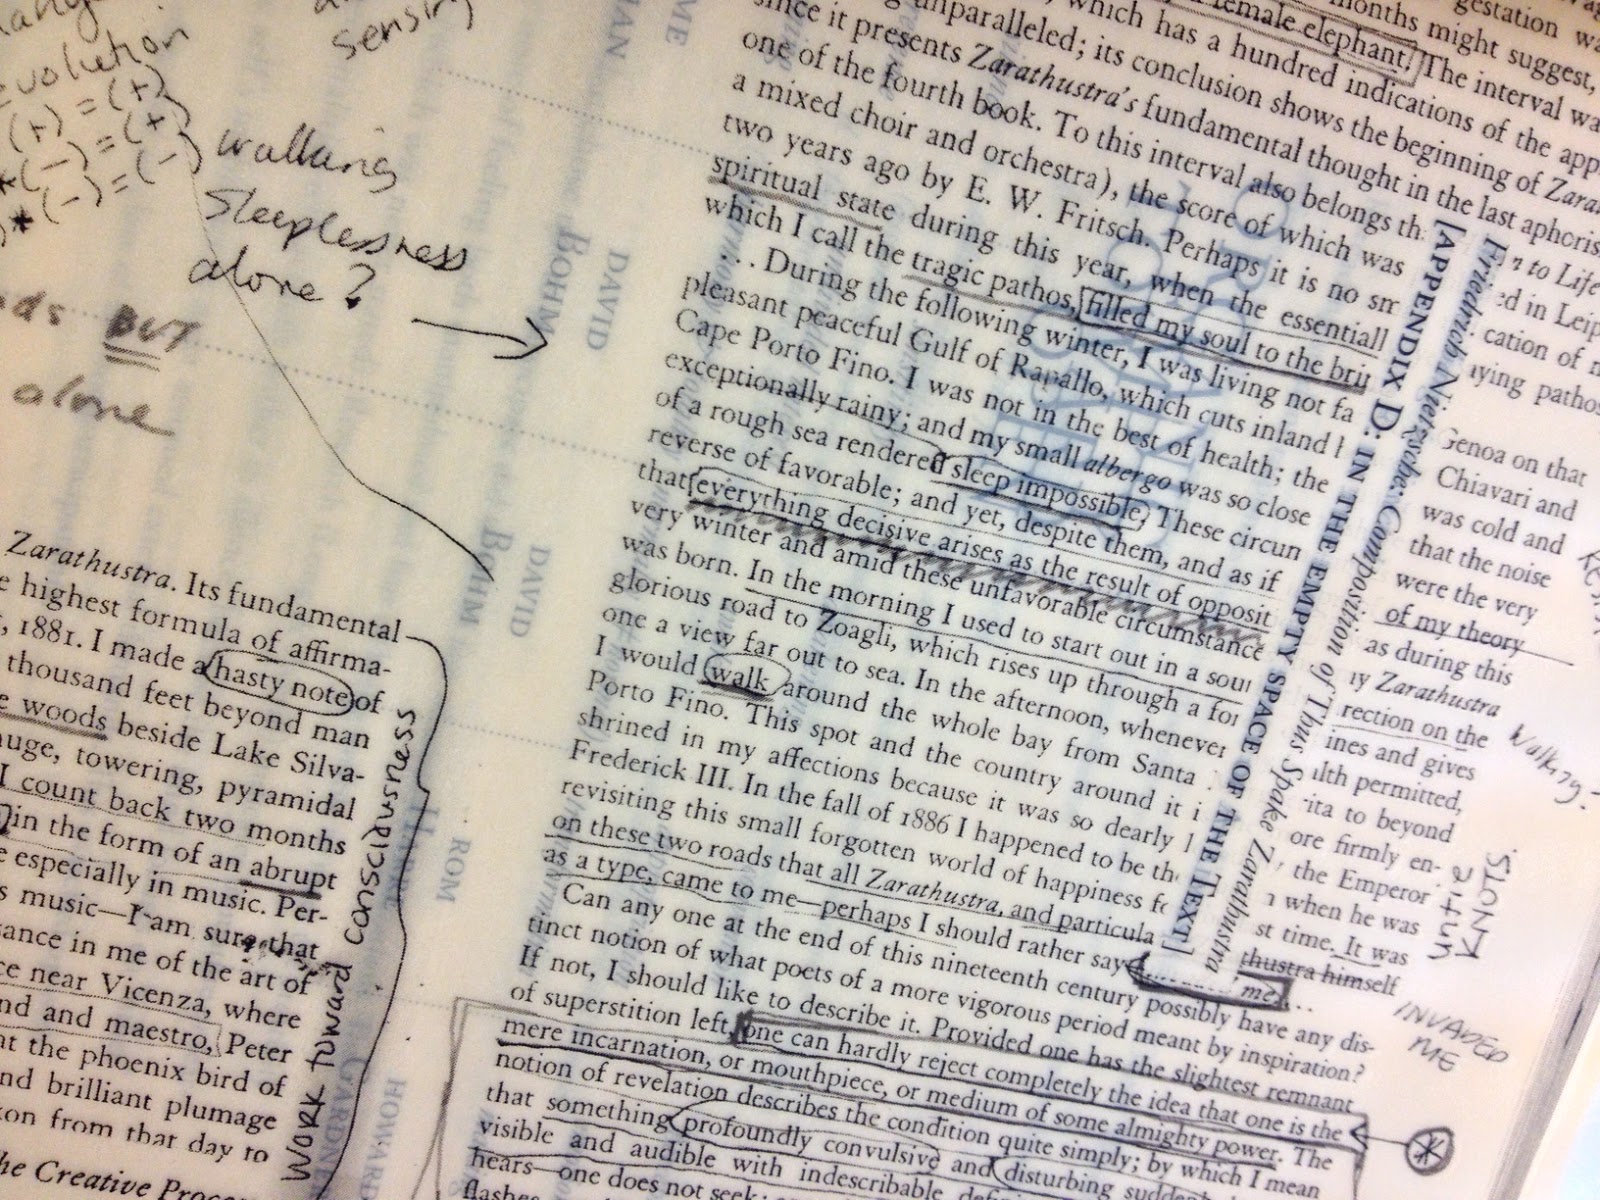 sensing
evolution
(+) = (+)
*(-) = (+
* (-) = (-)
walking
sleeplessness
alone?
BUT
alone
ME
MAN
DAVID
BOHM
DAVID
BOHM
ROM
HARRÉ
HOWARD
GARDNE
Zarathustra. Its fundamental
highest formula of affirma-
, 1881. I made a hasty note of
thousand feet beyond man
woods beside Lake Silva-
huge, towering, pyramidal
I count back two months
in the form of an abrupt
especially in music. Per-
s music—I am sure that
ance in me of the art of
near Vicenza, where
nd and maestro, Peter
the phoenix bird of
nd brilliant plumage
from that day to
he Creative Proce
Work toward consciousness
female elephant. The interval wa
which has a hundred indications of the app
unparalleled; its conclusion shows the beginning of Zara
since it presents Zarathustra's fundamental thought in the last aphoris
one of the fourth book. To this interval also belongs th
a mixed choir and orchestra), the score of which was
two years ago by E. W. Fritsch. Perhaps it is no sm
spiritual state during this year, when the essentiall
which I call the tragic pathos, filled my soul to the bri
. . . During the following winter, I was living not fa
pleasant peaceful Gulf of Rapallo, which cuts inland
Cape Porto Fino. I was not in the best of health; the
exceptionally rainy; and my small albergo was so close
of a rough sea rendered sleep impossible. These circun
reverse of favorable; and yet, despite them, and as if
that everything decisive arises as the result of opposit
very winter and amid these unfavorable circumstance
was born. In the morning I used to start out in a sout
glorious road to Zoagli, which rises up through a for
one a view far out to sea. In the afternoon, whenever
I would walk around the whole bay from Santa
Porto Fino. This spot and the country around it i
shrined in my affections because it was so dearly
Frederick III. In the fall of 1886 I happened to be th
revisiting this small forgotten world of happiness fo
on these two roads that all Zarathustra, and particula
as a type, came to me—perhaps I should rather say
me. . .
Can any one at the end of this nineteenth century possibly have any dis-
tinct notion of what poets of a more vigorous period meant by inspiration?
If not, I should like to describe it. Provided one has the slightest remnant
of superstition left, one can hardly reject completely the idea that one is the
mere incarnation, or mouthpiece, or medium of some almighty power. The
notion of revelation describes the condition quite simply; by which I mean
that something profoundly convulsive and disturbing sudden
visible and audible with indescribable defin
hears—one does not seek;
flashes
[APPENDIX D: IN THE EMPTY SPACE OF THE TEXT]
Friedrich Nietzsche: Composition of Thus Spake Zarathustra
gestation wa
months might suggest,
n to Life
ed in Leip
cation of m
ying patho
Genoa on that
Chiavari and
was cold and
that the noise
were the very
of my theory
as during this
y Zarathustra
rection on the
ines and gives
lth permitted,
ita to beyond
ore firmly en-
the Emperor
when he was
st time. It was
thustra himself
Walking.
INVADED
ME